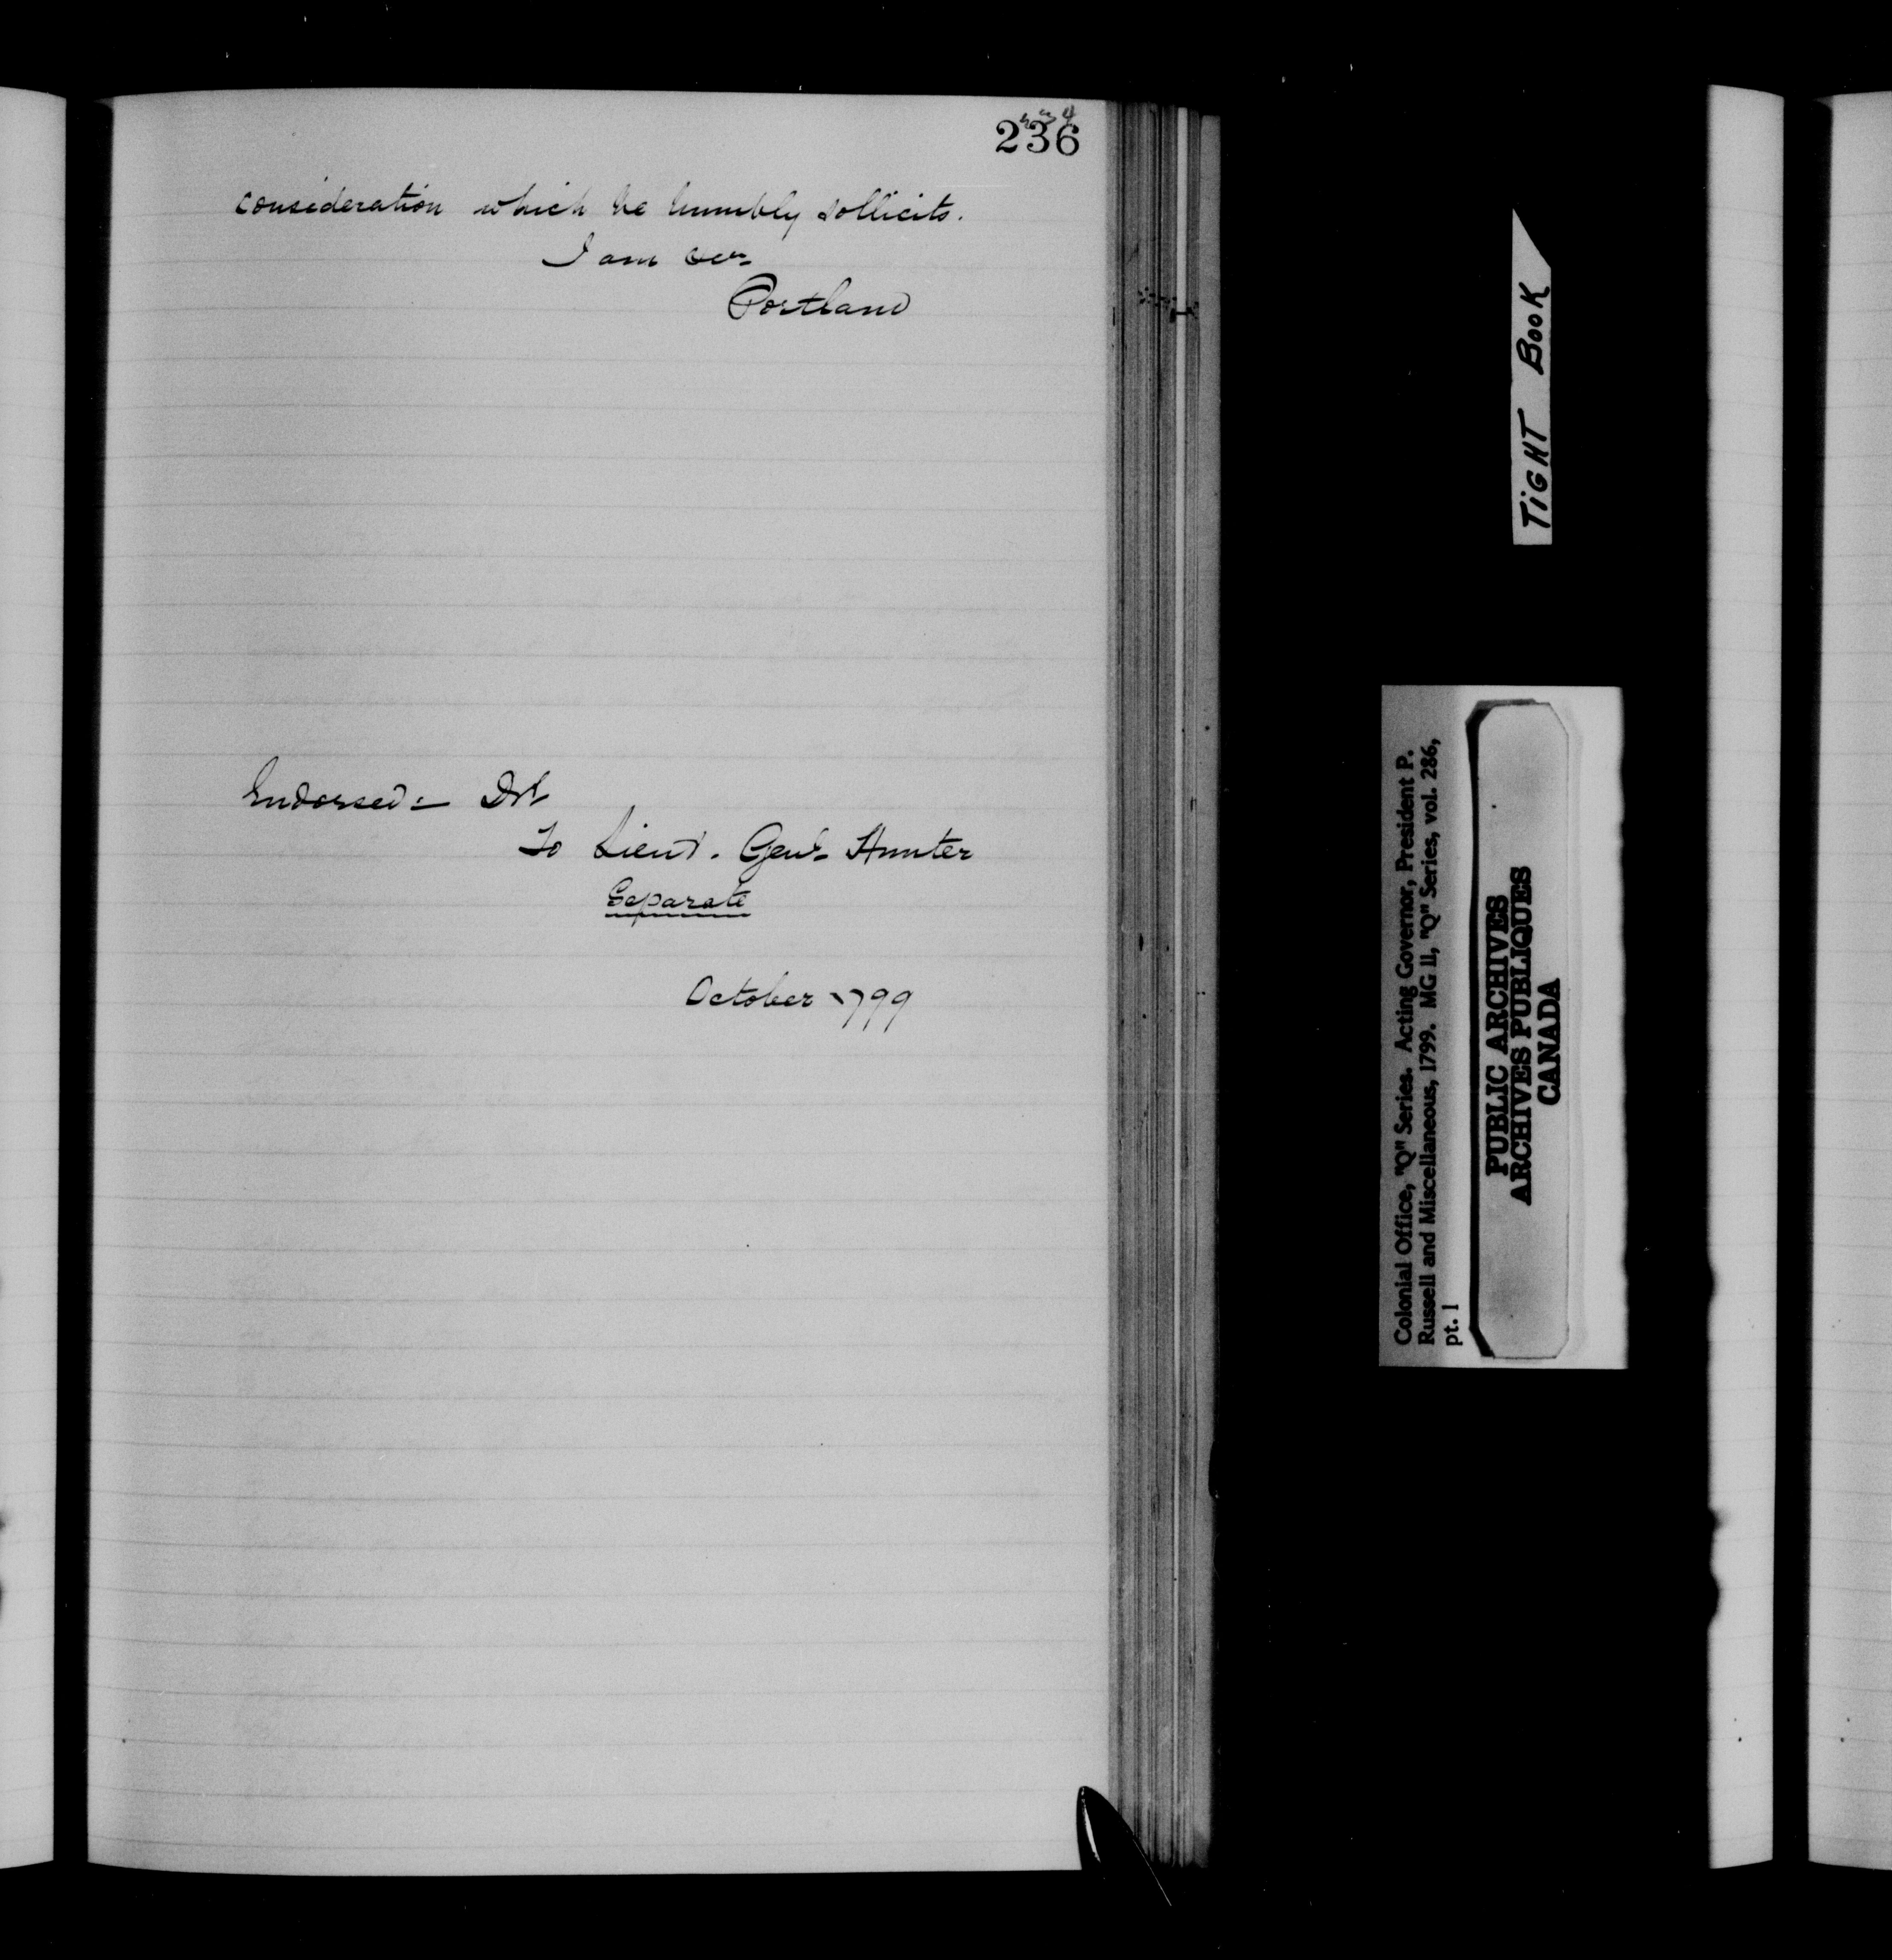 234
236
consideration which he humbly sollicits.
I am &c
Portland
Endorsed:— Dft
To Lieut. Genl. Hunter
Separate
October 1799
TIGHT BOOK
Colonial Office, "Q" Series. Acting Governor, President P.
Russell and Miscellaneous, 1799. MG 11, "Q" Series, vol. 286,
pt. 1
PUBLIC ARCHIVES
ARCHIVES PUBLIQUES
CANADA